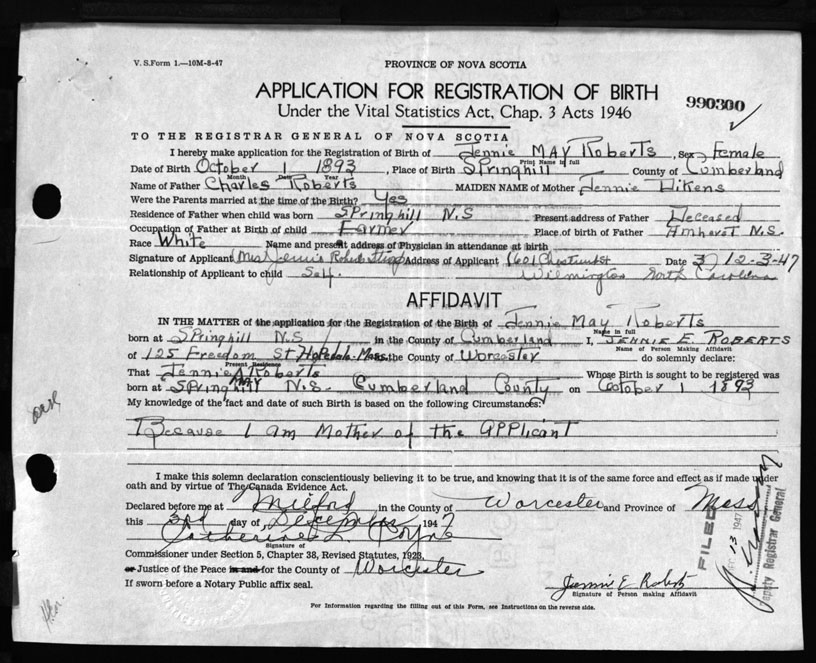 V. S. Form 1.—10M-8-47
PROVINCE OF NOVA SCOTIA
APPLICATION FOR REGISTRATION OF BIRTH
Under the Vital Statistics Act, Chap. 3 Acts 1946
990300
TO THE REGISTRAR GENERAL OF NOVA SCOTIA
I hereby make application for the Registration of Birth of Jennie MAY Roberts, Sex Female
Print Name in full
Date of Birth October 1 1893, Place of Birth Springhill County of Cumberland
Month Date Year
Name of Father Charles Roberts MAIDEN NAME of Mother Jennie Dikens
Were the Parents married at the time of the Birth? Yes
Residence of Father when child was born SPringhill N.S Present address of Father Deceased
Occupation of Father at Birth of child Farmer Place of birth of Father Amherst N.S.
Race White Name and present address of Physician in attendance at birth
Signature of Applicant Mrs Jennie Roberts Address of Applicant 1601 Chestnut St Date 12-3-47
Relationship of Applicant to child Self. Wilmington North Carolina
AFFIDAVIT
IN THE MATTER of the application for the Registration of the Birth of Jennie May Roberts
Name in full
born at SPringhill N.S in the County of Cumberland I, JENNIE E. ROBERTS
Name of Person Making Affidavit
of 125 Freedom St Hopedale Mass. the County of Worcester do solemnly declare:
Present Residence
That Jennie MAY Roberts Whose Birth is sought to be registered was
born at SPringhill N.S. Cumberland County on October 1 1893
My knowledge of the fact and date of such Birth is based on the following Circumstances:
Because I am Mother of the APPlicant
I make this solemn declaration conscientiously believing it to be true, and knowing that it is of the same force and effect as if made under
oath and by virtue of The Canada Evidence Act.
Declared before me at Milford in the County of Worcester and Province of Mass
this 3rd day of December 1947
Catherine L. Coyne
Signature of
Commissioner under Section 5, Chapter 38, Revised Statutes, 1923.
or Justice of the Peace in and for the County of Worcester
If sworn before a Notary Public affix seal.
Jennie E. Roberts
Signature of Person making Affidavit
For Information regarding the filling out of this Form, see Instructions on the reverse side.
FILED
13 1947
Deputy Registrar General